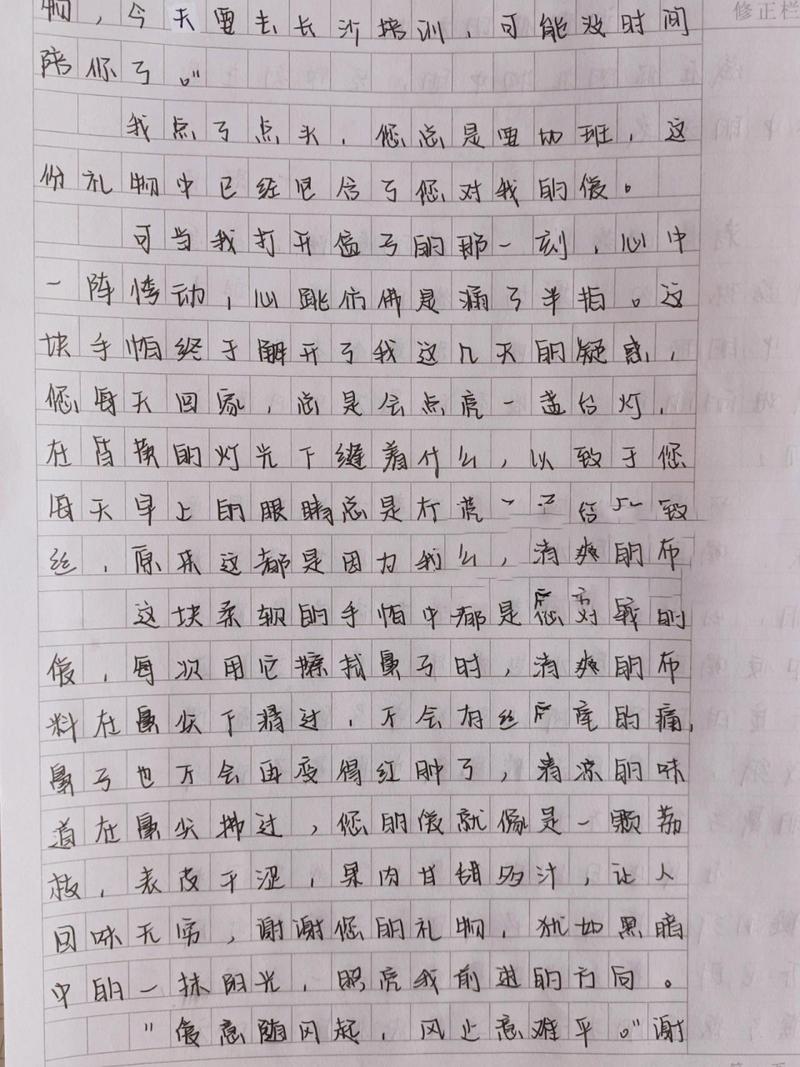 修正栏
物，今天要去长沙培训，可能没时间
陪你了。”
我点了点头，您总是要加班，这
份礼物中已经包含了您对我的爱。
可当我打开盒子的那一刻，心中
一阵悸动，心跳仿佛是漏了半拍。这
块手帕终于解开了我这几天的疑惑，
您每天回家，总是会点亮一盏台灯，
在昏黄的灯光下缝着什么，以致于您
每天早上的眼睛总是布满
丝，原来这都是因为我么，清爽的布
这块柔软的手帕中都是您对我的
爱，每次用它擦拭鼻子时，清爽的布
料在鼻尖下精过，不会有丝的痛，
鼻子也不会再变得红肿了，清凉的味
道在鼻尖拂过，您的爱就像是一颗荔
枝，表皮干涩，果肉甘甜多汁，让人
回味无穷，谢谢您的礼物，犹如黑暗
中的一抹阳光，照亮我前进的方向。
“爱意随风起，风止意难平。”谢